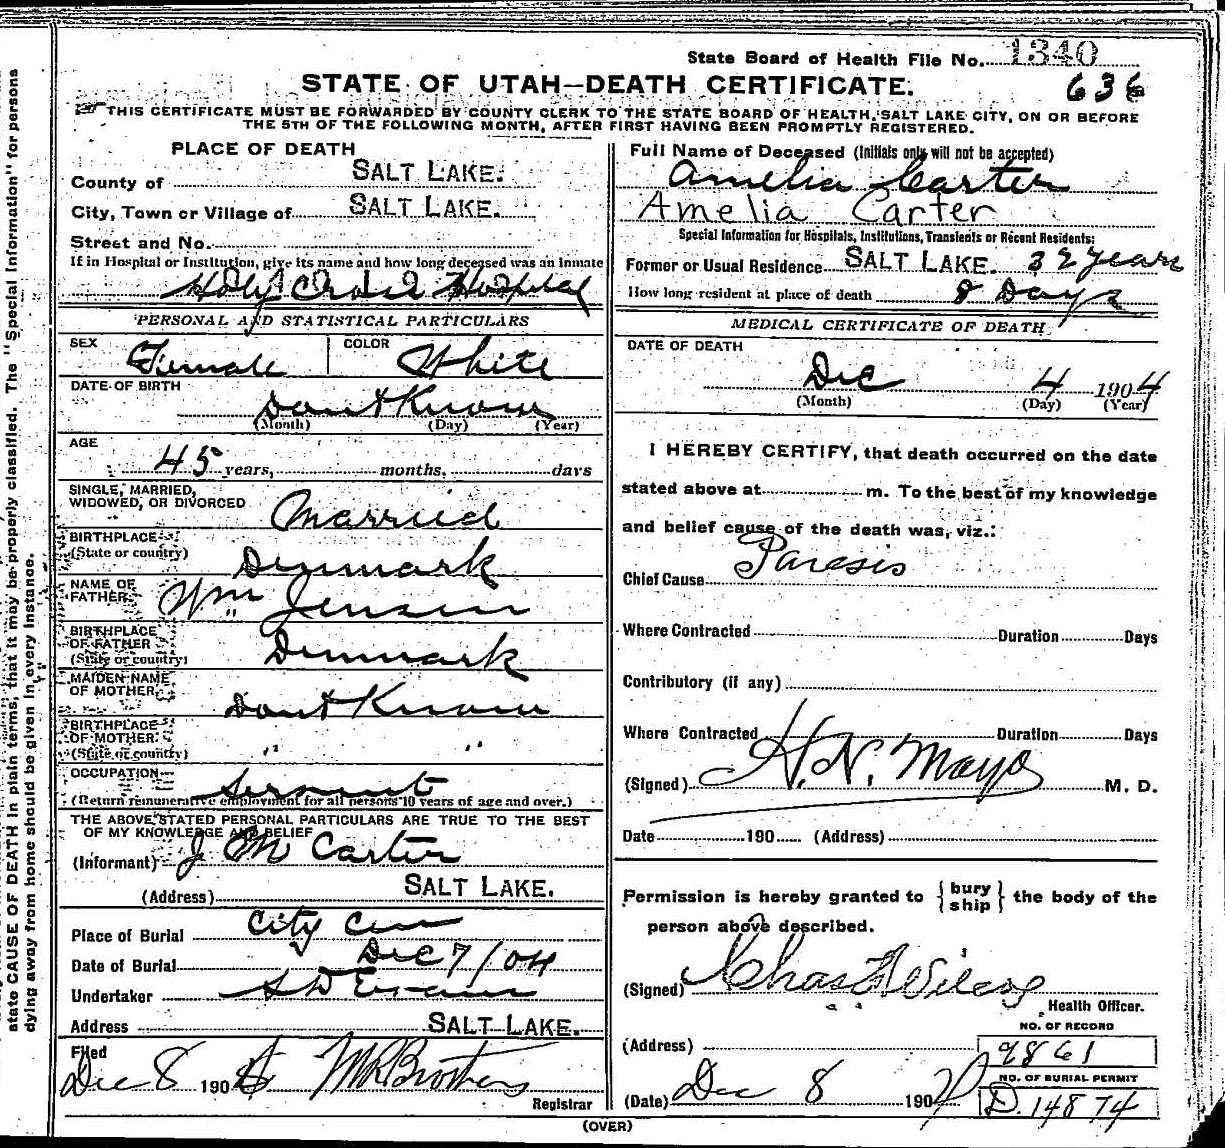 State Board of Health File No. 1340
STATE OF UTAH—DEATH CERTIFICATE.
636
THIS CERTIFICATE MUST BE FORWARDED BY COUNTY CLERK TO THE STATE BOARD OF HEALTH, SALT LAKE CITY, ON OR BEFORE
THE 5TH OF THE FOLLOWING MONTH, AFTER FIRST HAVING BEEN PROMPTLY REGISTERED.
state CAUSE OF DEATH in plain terms, that it may be properly classified. The "Special Information" for persons
dying away from home should be given in every instance.
PLACE OF DEATH
County of SALT LAKE.
City, Town or Village of SALT LAKE.
Street and No.
If in Hospital or Institution, give its name and how long deceased was an inmate
Holy Cross Hospital
PERSONAL AND STATISTICAL PARTICULARS
SEX Female COLOR White
DATE OF BIRTH
Dont Know
(Month) (Day) (Year)
AGE
45 years, months, days
SINGLE, MARRIED,
WIDOWED, OR DIVORCED Married
BIRTHPLACE
(State or country) Denmark
NAME OF
FATHER Wm Jensen
BIRTHPLACE
OF FATHER
(State or country) Denmark
MAIDEN NAME
OF MOTHER Dont Know
BIRTHPLACE
OF MOTHER
(State or country) " "
OCCUPATION Servant
(Return remunerative employment for all persons 10 years of age and over.)
THE ABOVE STATED PERSONAL PARTICULARS ARE TRUE TO THE BEST
OF MY KNOWLEDGE AND BELIEF
(Informant) J M Carter
(Address) SALT LAKE.
Place of Burial City Cem
Date of Burial Dec 7/04
Undertaker S D Evans
Address SALT LAKE.
Filed
Dec 8 190
Registrar
Full Name of Deceased (Initials only will not be accepted)
Amelia Carter
Amelia Carter
Special Information for Hospitals, Institutions, Transients or Recent Residents:
Former or Usual Residence SALT LAKE. 32 years
How long resident at place of death 8 Days
MEDICAL CERTIFICATE OF DEATH
DATE OF DEATH
Dec 4 1904
(Month) (Day) (Year)
I HEREBY CERTIFY, that death occurred on the date
stated above at m. To the best of my knowledge
and belief cause of the death was, viz.:
Chief Cause Paresis
Where Contracted Duration Days
Contributory (if any)
Where Contracted Duration Days
(Signed) H. N. Mayo M. D.
Date 190 (Address)
Permission is hereby granted to { bury
ship } the body of the
person above described.
(Signed) Chas
Health Officer.
NO. OF RECORD
(Address) 9861
NO. OF BURIAL PERMIT
(Date) Dec 8 190 D. 14874
(OVER)